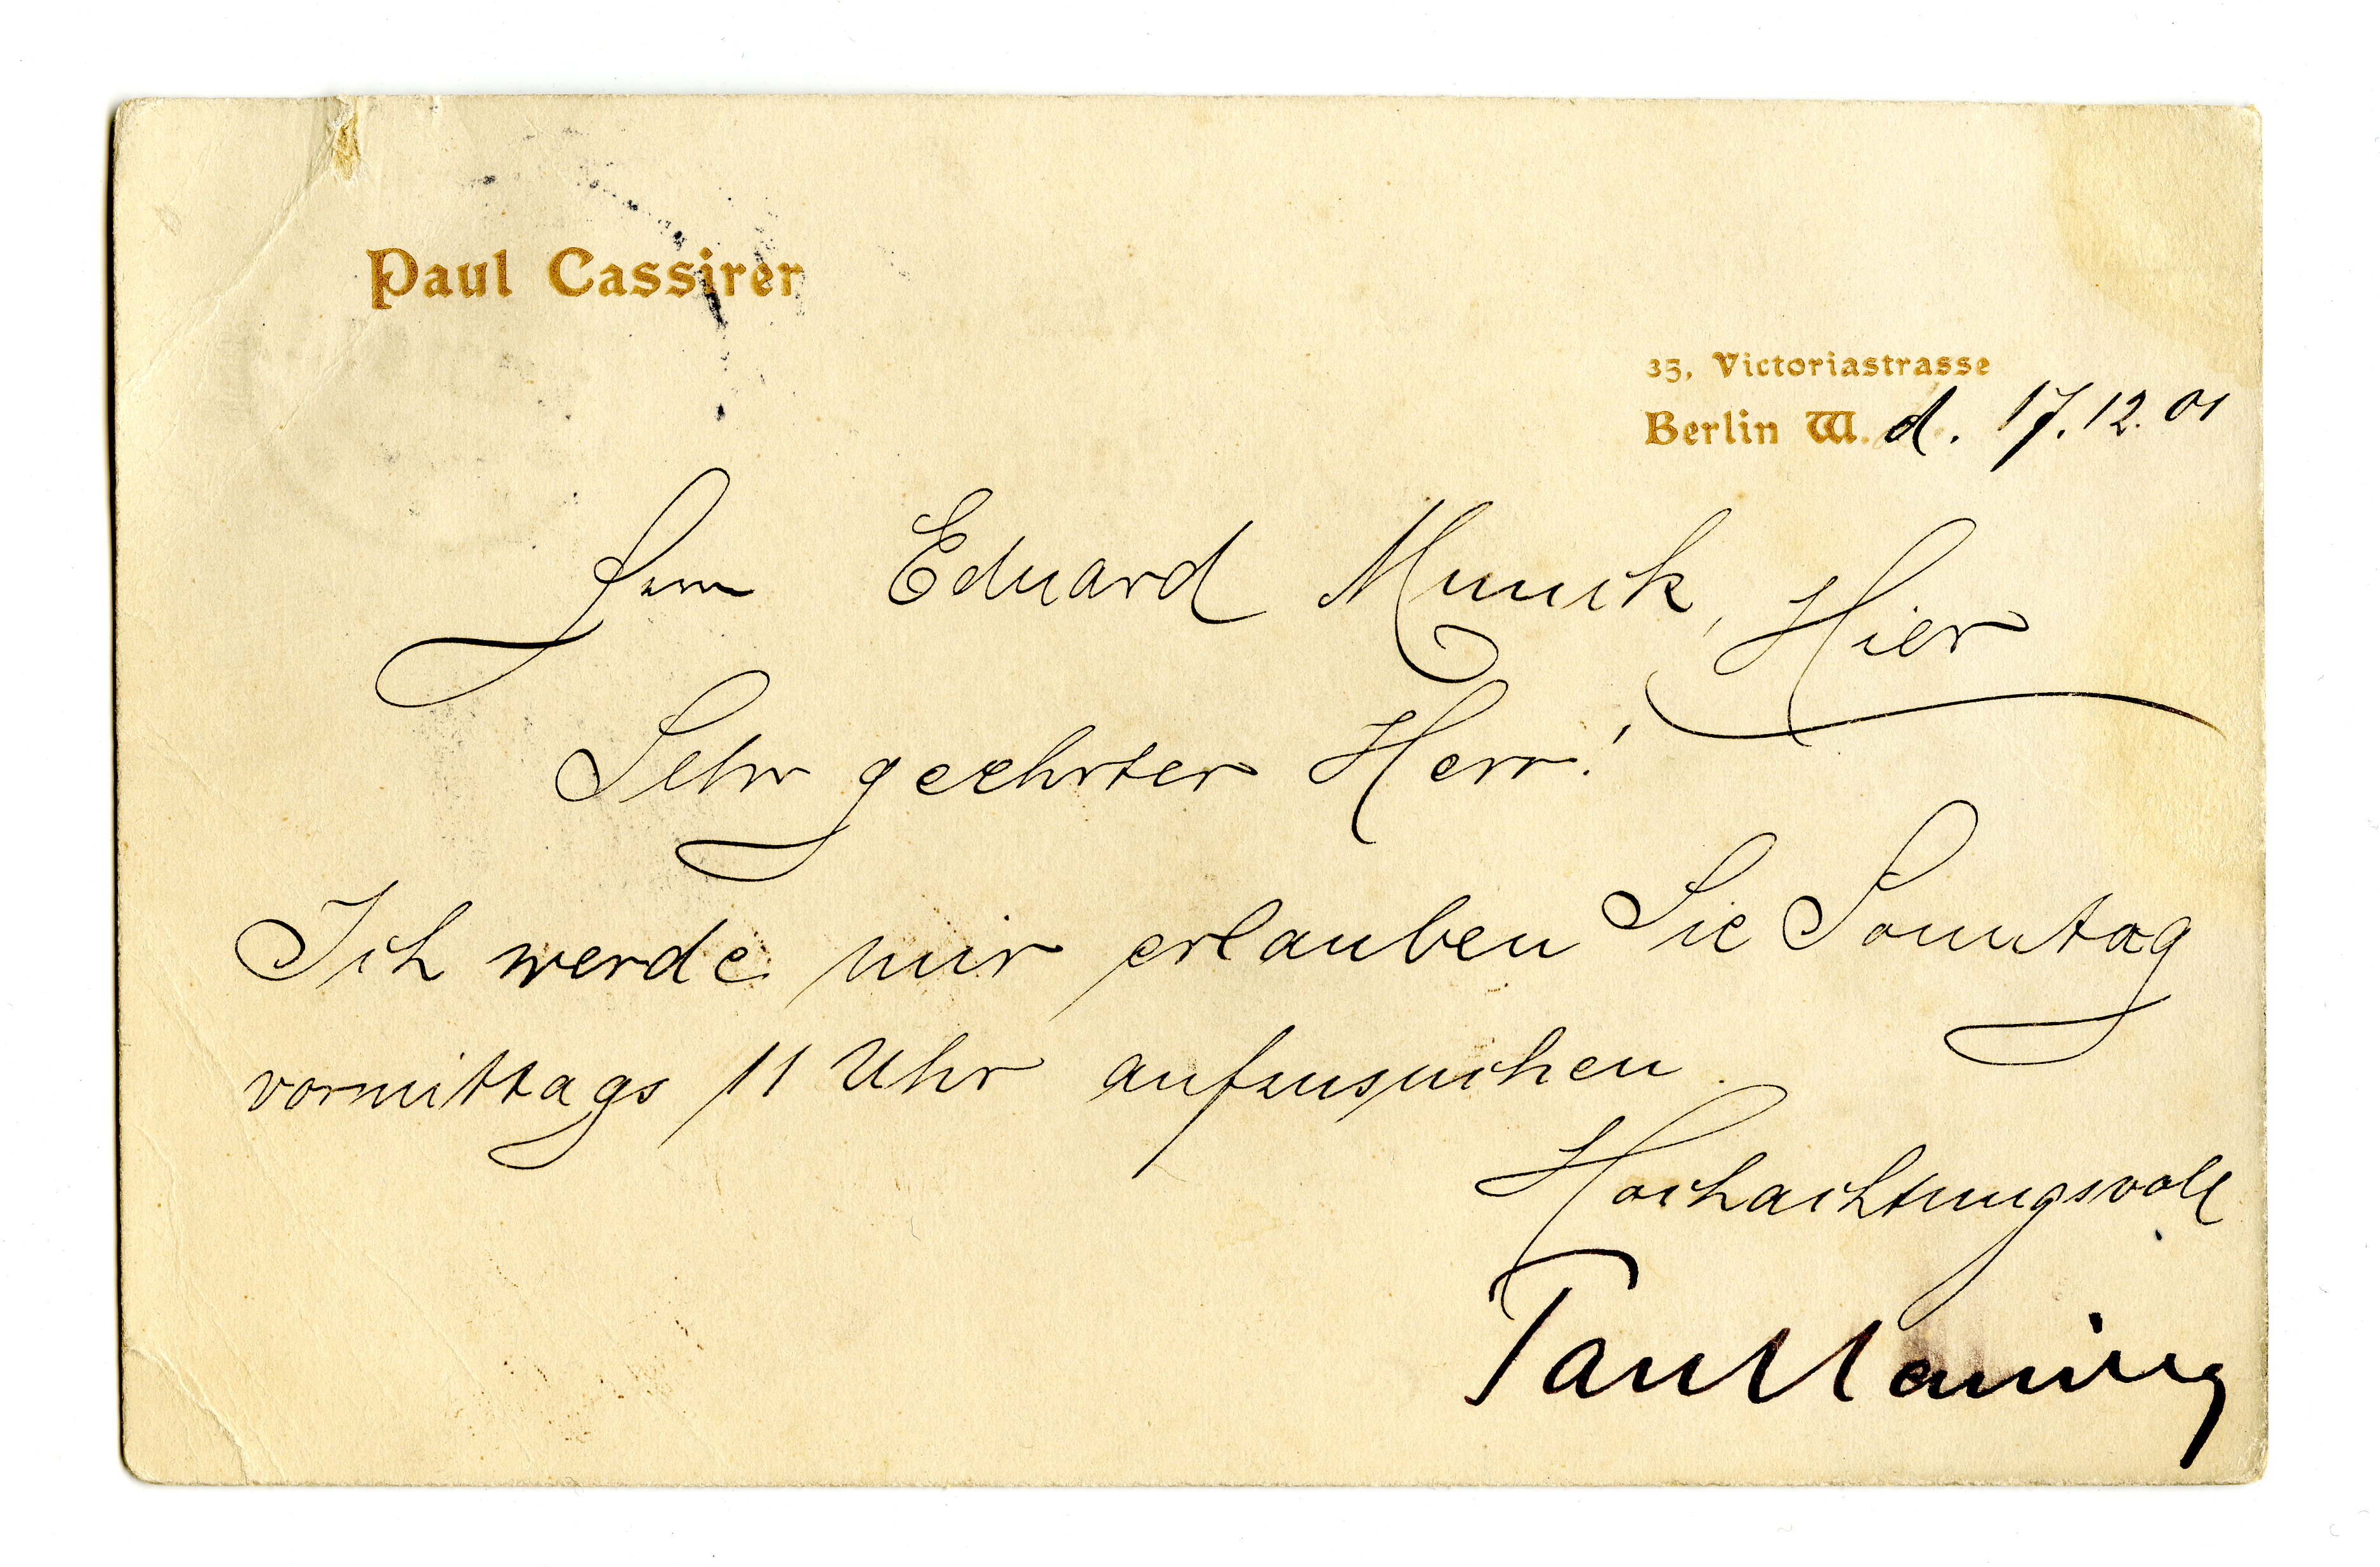 Paul Cassirer
35, Victoriastrasse
Berlin W. d. 17.12.01
Herrn Eduard Munck, Hier
Sehr geehrter Herr!
Ich werde mir erlauben Sie Sonntag
vormittags 11 Uhr aufzusuchen.
Hochachtungsvoll